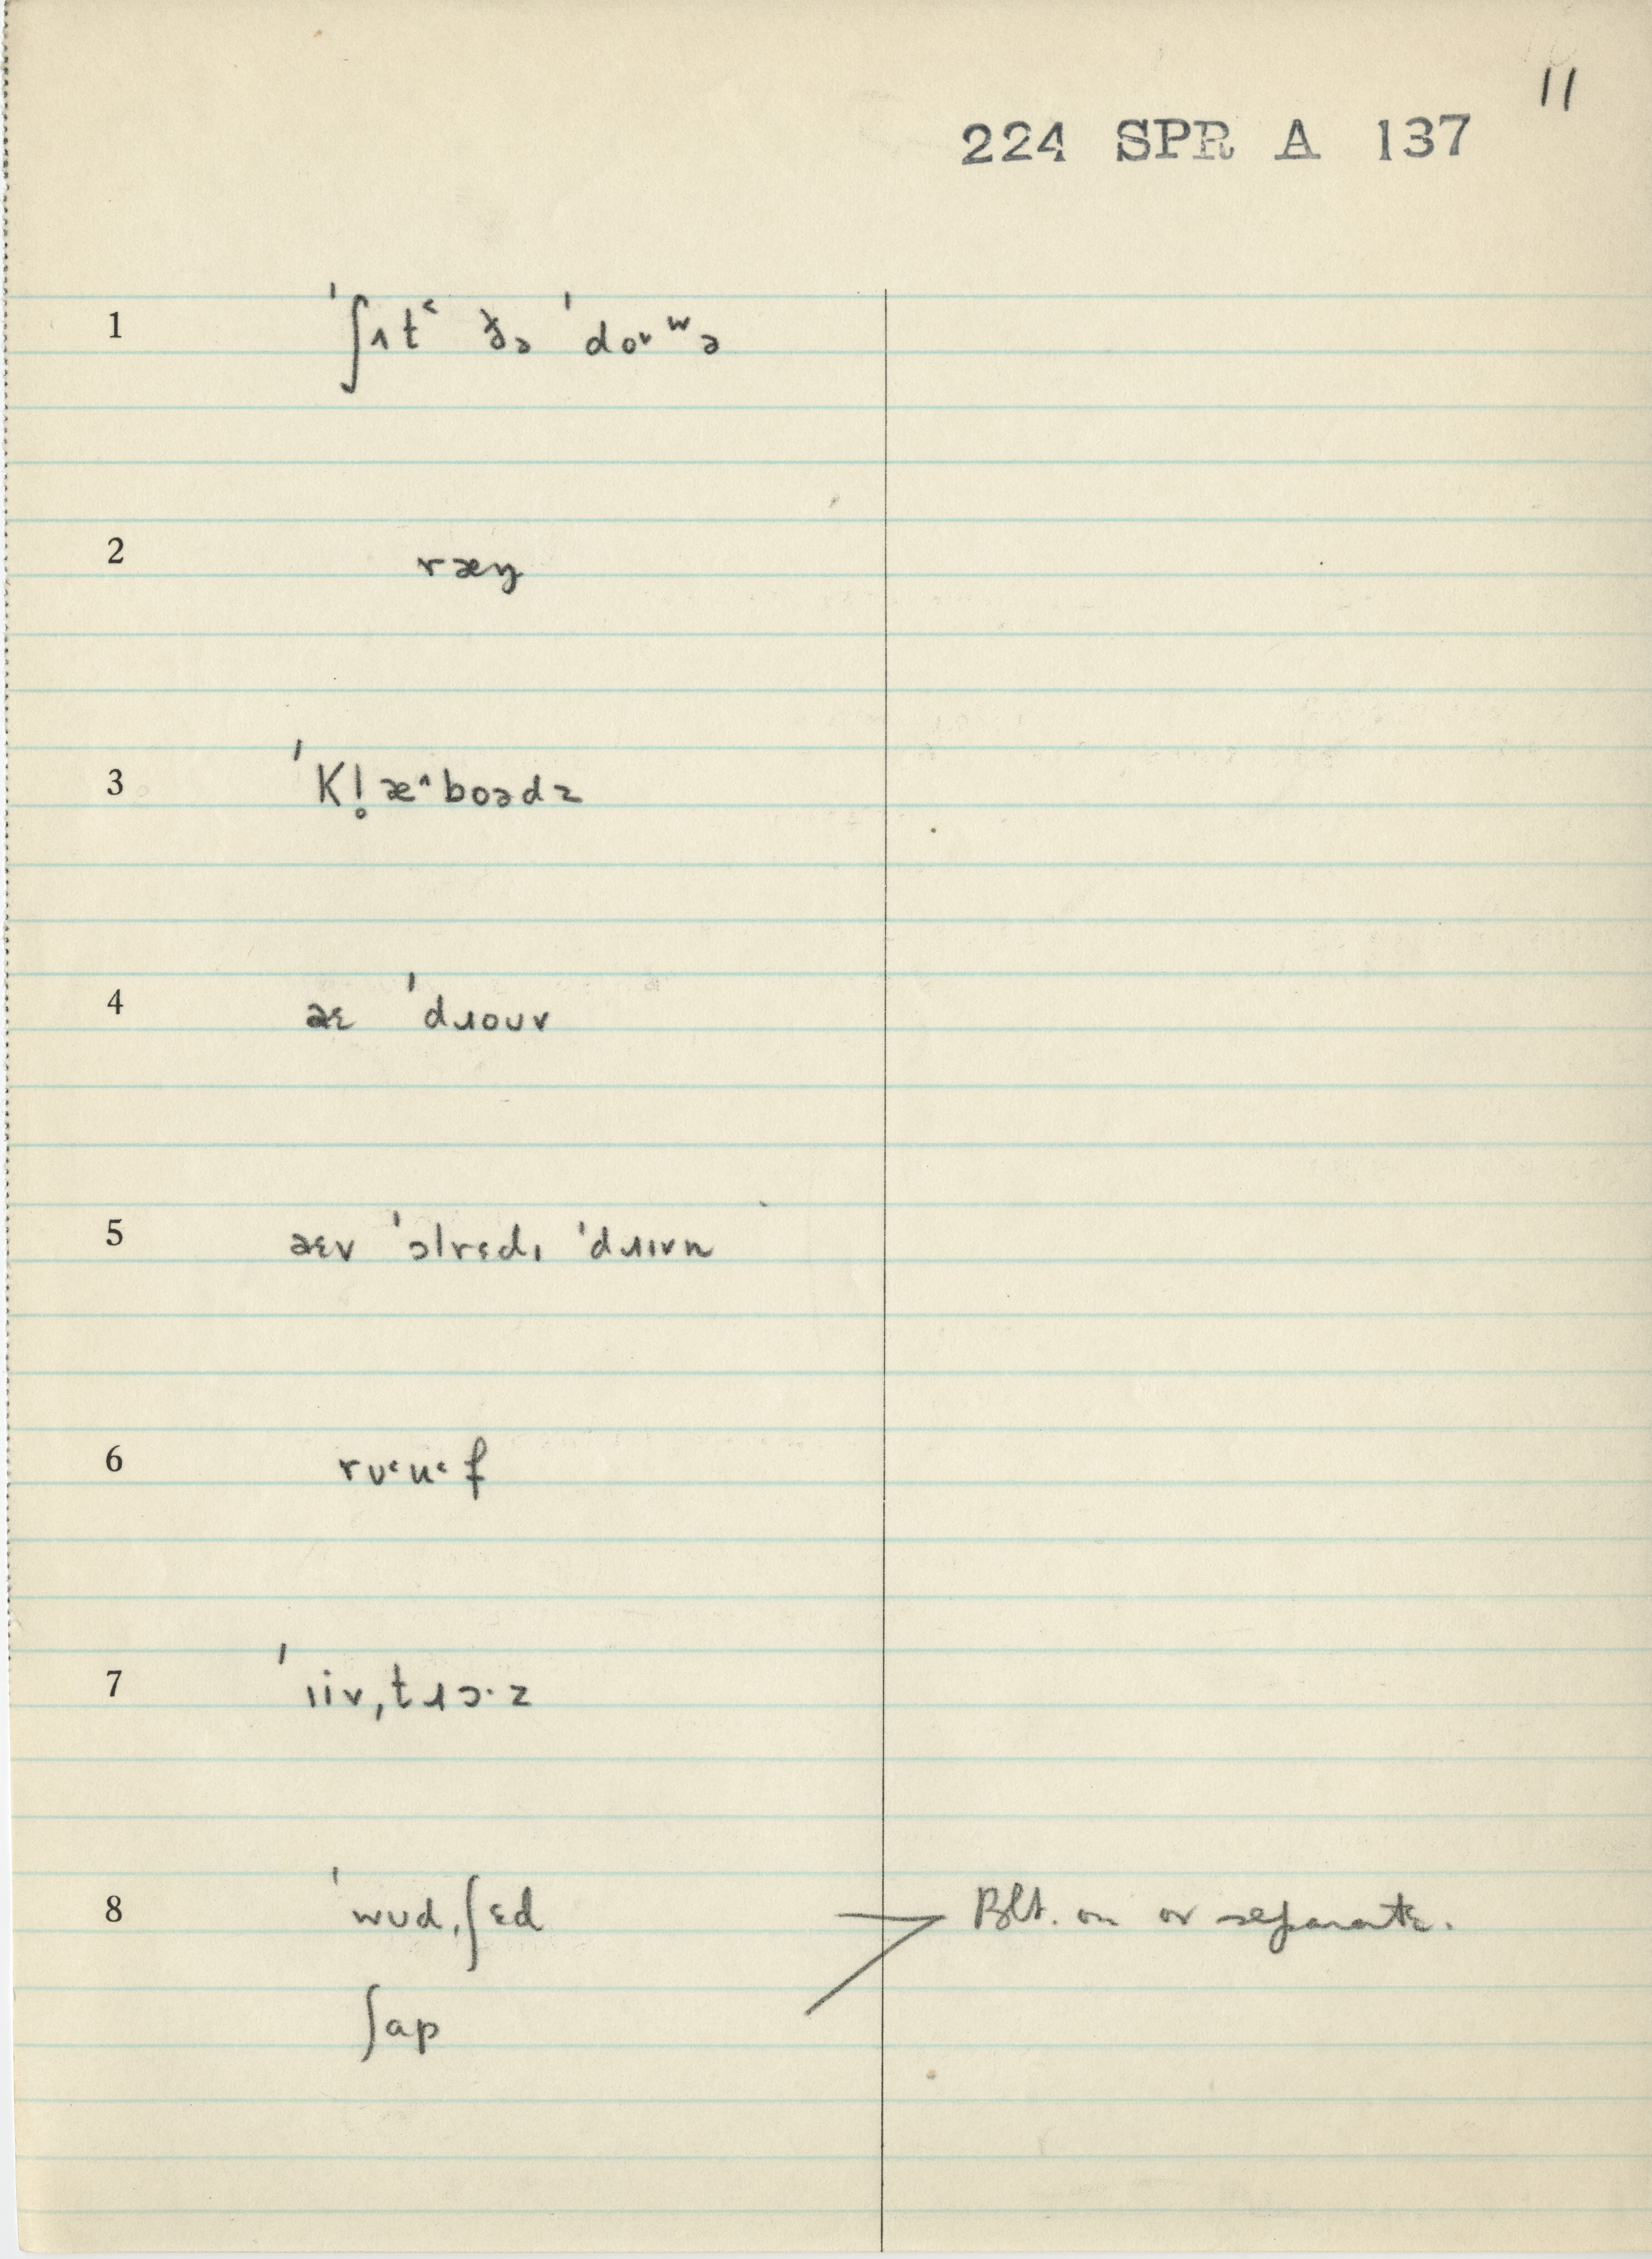 11
224 SPR A 137
1 ˈʃʌt˂ ðə ˈdoᵛʷə
2 ræŋ
3 ˈkl̥æ^boədz
4 aɛ ˈdɹoʊv
5 aɛv ˈɔlrɛdɪ ˈdɹɪvn
6 rʊ˂u˂f
7 ˈɪiv,tɹɔ·z
8 ˈwʊd,ʃɛd Blt. on or separate.
ʃap